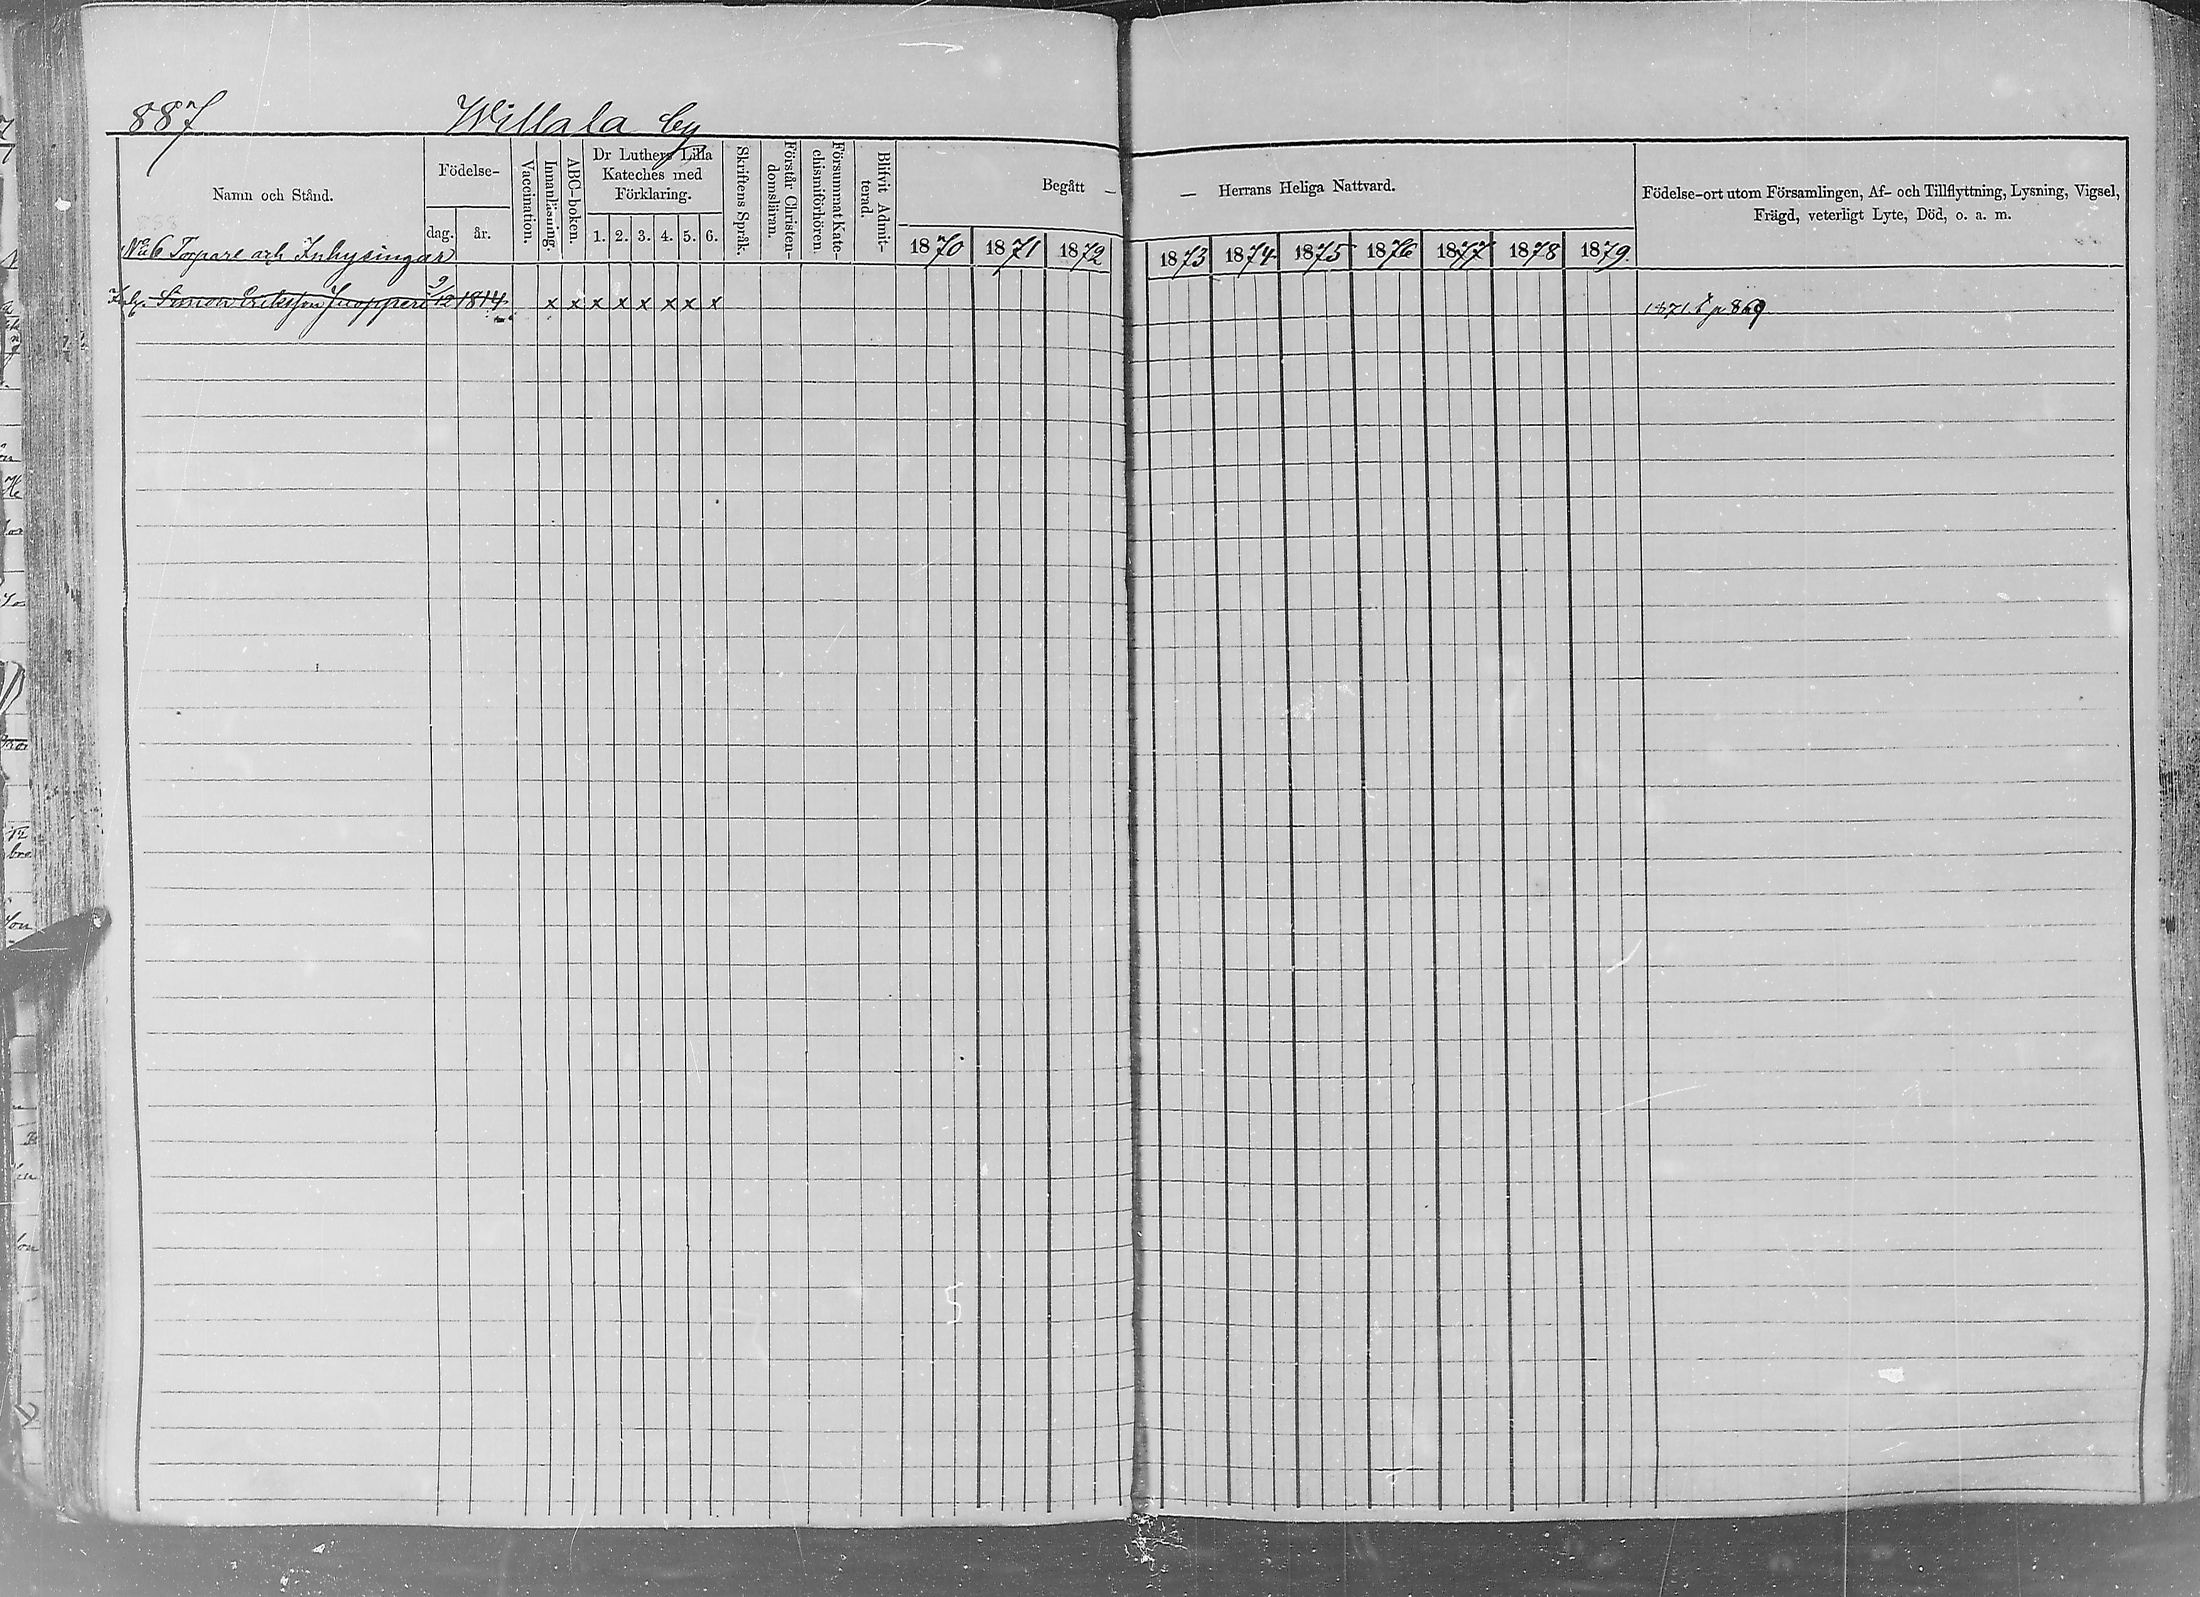 887 Willala by
Namn och Stånd.
Födelse-
dag. år.
Vaccination.
Innanläsning.
ABC-boken.
Dr Luthers Lilla
Kateches med
Förklaring.
1. 2. 3. 4. 5. 6.
Skriftens Språk.
Förstår Christen-
domsläran.
Försummat Kate-
chismiförhören.
Blifvit Admit-
terad.
Begått — — Herrans Heliga Nattvard.
1870 1871 1872 1873 1874 1875 1876 1877 1878 1879
Födelse-ort utom Församlingen, Af- och Tillflyttning, Lysning, Vigsel,
Frägd, veterligt Lyte, Död, o. a. m.
No 6 Torpare och Inhysingar
Simon Eriksson 9/12 1814 x x x x x x x x 1871 p 869